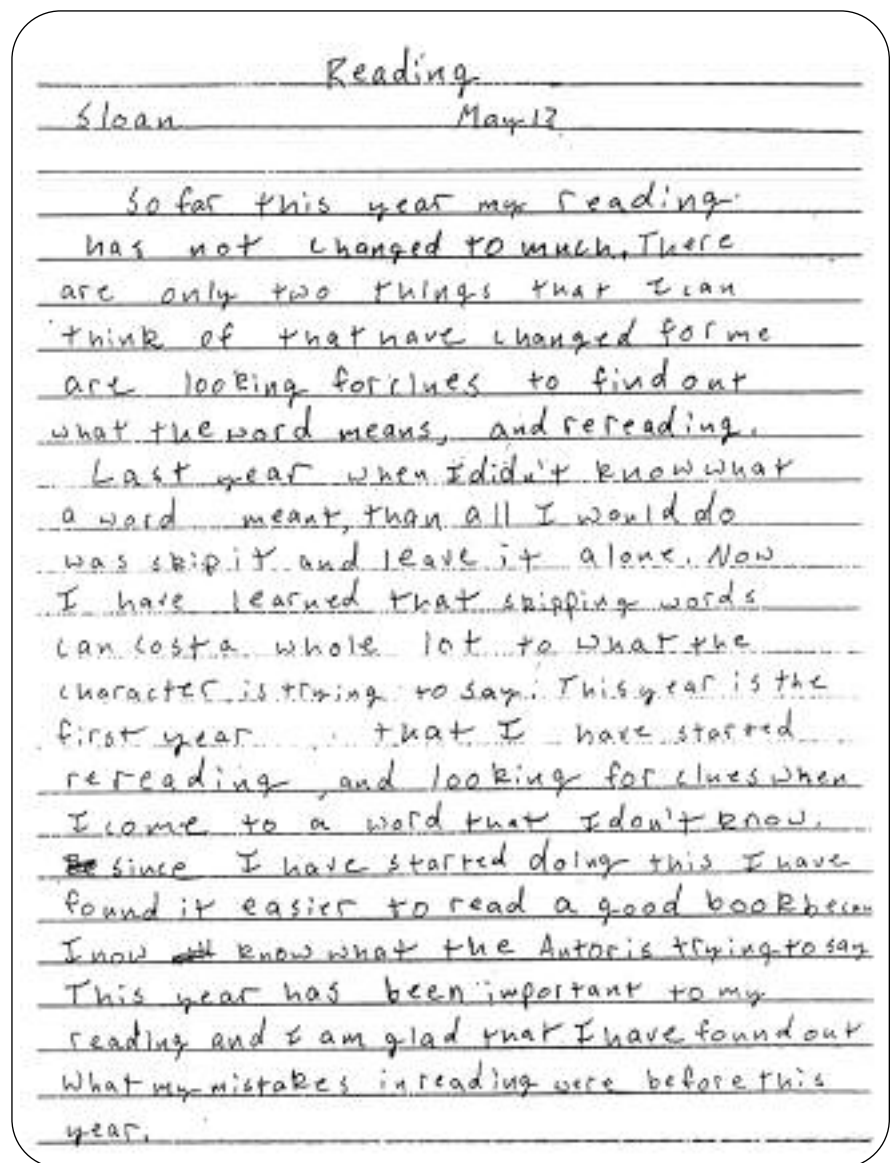 Reading
Sloan May 12
So far this year my reading
has not changed to much. There
are only two things that I can
think of that have changed for me
are looking for clues to find out
what the word means, and rereading.
Last year when I didn't know what
a word meant, than all I would do
was skip it and leave it alone. Now
I have learned that skipping words
can cost a whole lot to what the
character is trying to say. This year is the
first year that I have started
rereading and looking for clues when
I come to a word that I don't know.
since I have started doing this I have
found it easier to read a good book
I now know what the Autor is trying to say
This year has been important to my
reading and I am glad that I have found out
What my mistakes in reading were before this
year.